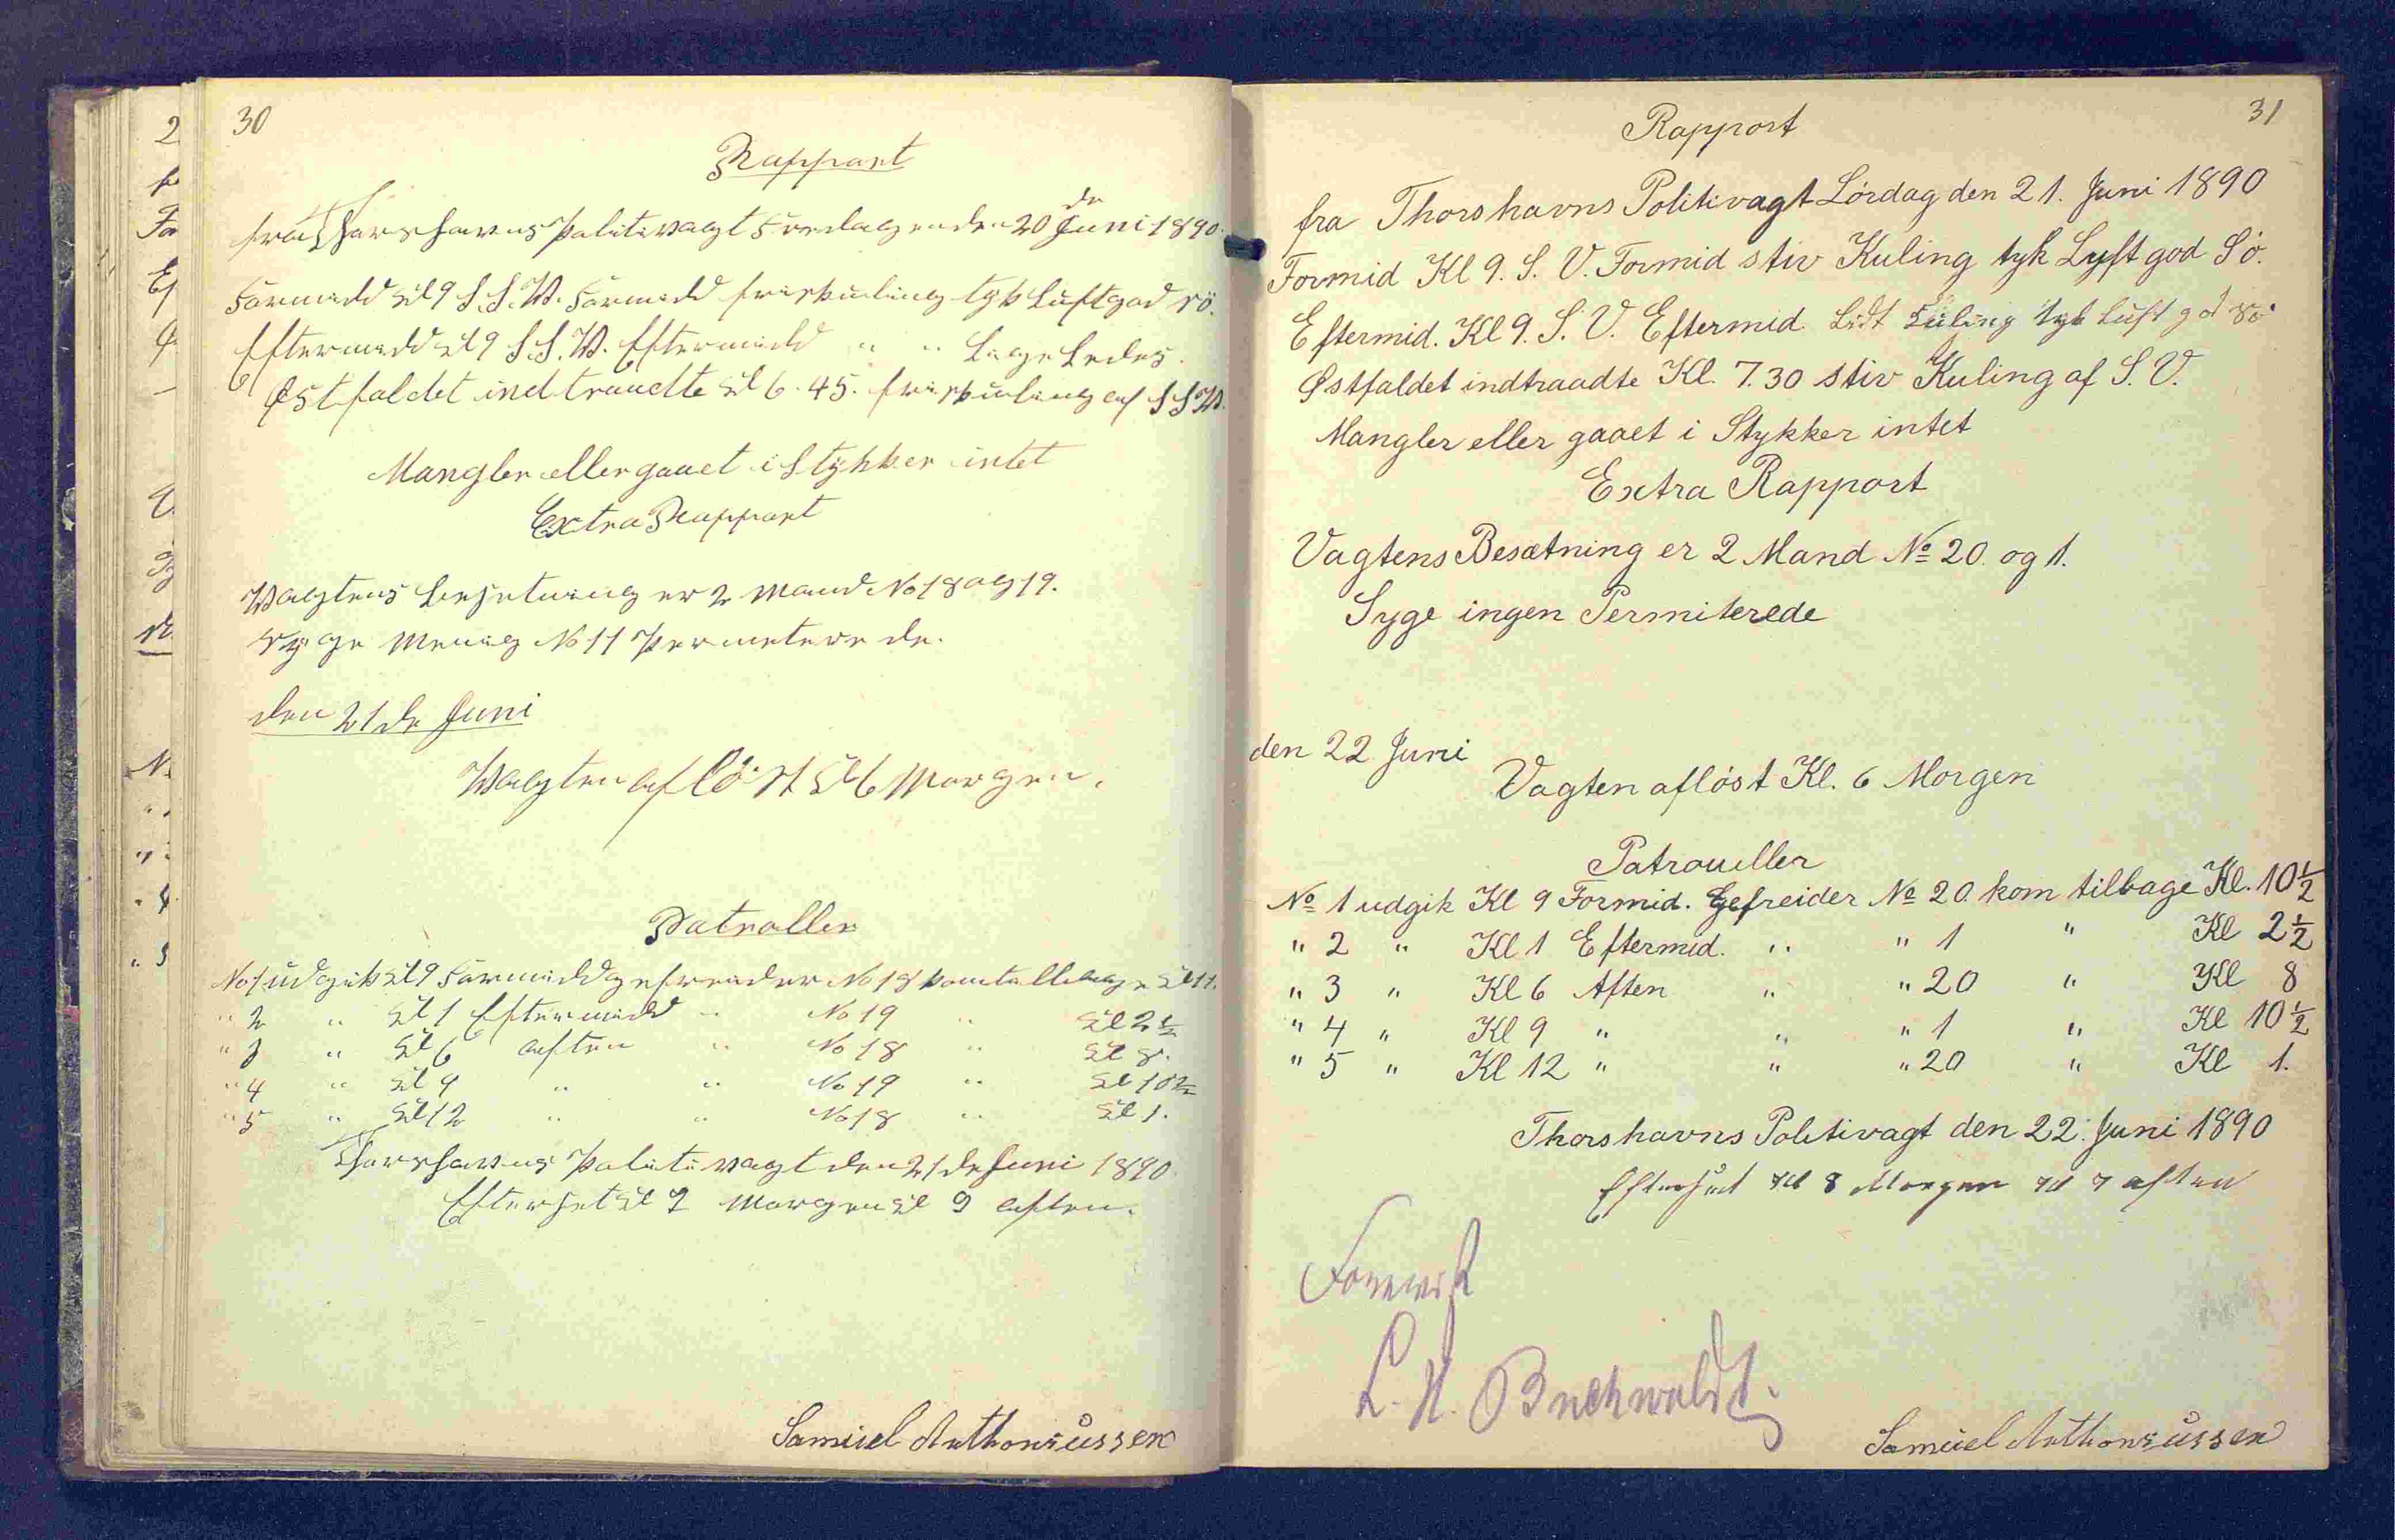 30
Rapport
fra Thorshavns Politivagt Fredagen den 20 de Juni 1890.
Formidd Kl 9 S.S.W. Formidd frisk kuling tyk Luft god Sö.
Eftermidd Kl 9 S.S.W. Eftermidd " " Ligeledes.
Østfaldet indtraadte Kl 6.45. frisk kuling af S S W.
Mangler eller gaaet i Stykker intet
Extra Rapport
Wagtens besetning er 2 Mand No 18 og 19.
Syge Menig No 11 Permeterede.
den 21 de Juni
Wagten aflöst Kl 6 Morgen.
Patroller
No 1 udgik Kl 9 Formidd gefreider No 18 kom tillbage Kl 11.
" 2 " Kl 1 Eftermidd " No 19 " Kl 2 1/2
" 3 " Kl 6 aften " No 18 " Kl 8.
" 4 " Kl 9 " " No 19 " Kl 10 1/2
" 5 " Kl 12 " " No 18 " Kl 1.
Thorshavns Politivagt den 21 de Juni 1890
Efterset Kl 9 Morgen Kl 9 aften.
Samuel Anthoniussen
31
Rapport
fra Thorshavns Politivagt Lördag den 21. Juni 1890
Formid Kl 9. S. V. Formid stiv Kuling tyk Lyft god Sö.
Eftermid. Kl 9. S. V. Eftermid. Lidt Kuling tyk Luft god Sö
Østfaldet indtraadte Kl. 7.30 stiv Kuling af S. V.
Mangler eller gaaet i Stykker intet
Extra Rapport
Vagtens Besætning er 2 Mand No 20. og 1.
Syge ingen Permiterede
den 22 Juni
Vagten aflöst Kl. 6 Morgen
Patrouller
No 1 udgik Kl 9 Formid. Gefreider No 20. kom tilbage Kl. 10 1/2
" 2 " Kl 1 Eftermid. " " 1 " Kl 2 1/2
" 3 " Kl 6 Aften " " 20 " Kl 8
" 4 " Kl 9 " " " 1 " Kl 10 1/2
" 5 " Kl 12 " " " 20 " Kl 1.
Thorshavns Politivagt den 22. Juni 1890
Efterset Kl 8 Morgen Kl 7 aften
Forevist
L. H. Buchwaldt.
Samuel Anthoniussen